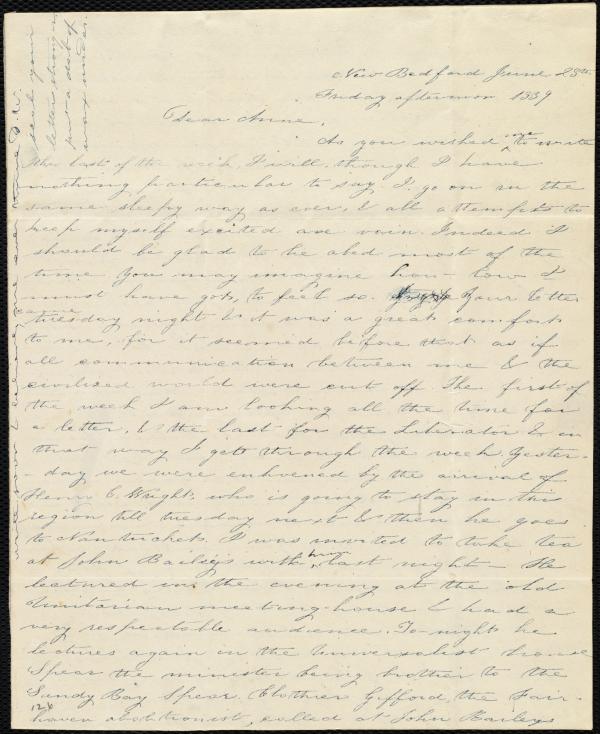 New Bedford June 28th
Friday afternoon 1839
Dear Anne,
As you wished me to write
the last of the week, I will, though I have
nothing particular to say. I go on in the
same sleepy way as ever, & all attempts to
keep myself excited are vain. Indeed I
should be glad to lie abed most of the
time You may imagine how low I
must have got, to feel so. Your letter
came
tuesday night & it was a great comfort
to me, for it seemed before that as if
all communication between me & the
civilized world were cut off The first of
the week I am looking all the time for
a letter, & the last for the Liberator & in
that way I get through the week Yester-
-day we were enlivened by the arrival of
Henry C. Wright, who is going to stay in this
region till tuesday next & then he goes
to Nantucket. I was invited to take tea
at John Bailey's with him last night - He
lectured in the evening at the old
Unitarian meeting-house & had a
very respectable audience. To-night he
lectures again in the Universalist house
Spear the minister being brother to the
Sandy Bay Spear. Clother Gifford, the Fair-
haven abolitionist, called at John Bailey's
126
seal your
letters strong or
put a dab of
wax under